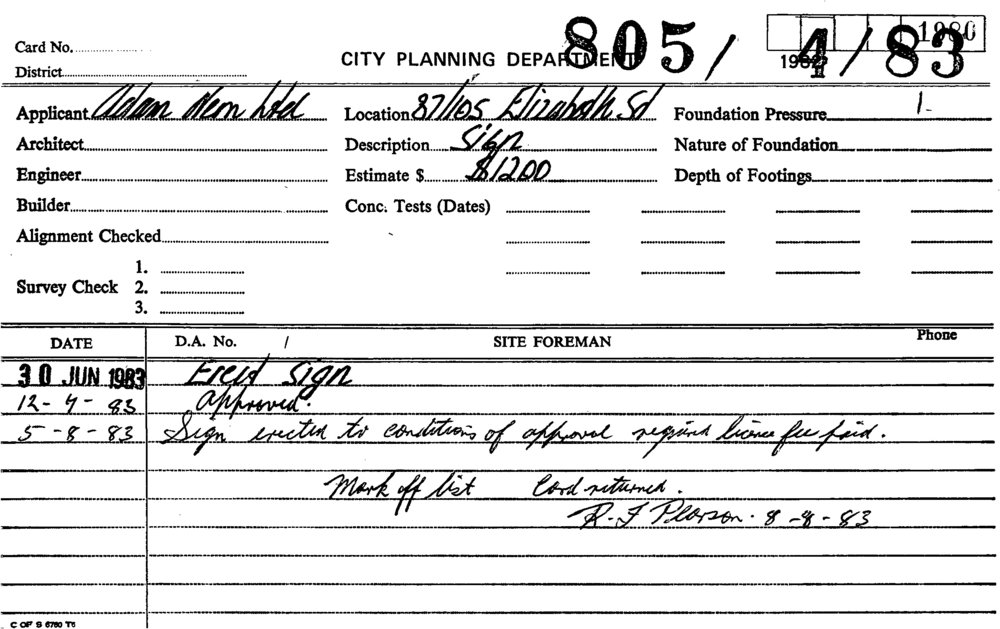 805/ 4/83
1980
Card No.
CITY PLANNING DEPARTMENT
District
Applicant Adam Neon Ltd Location 87/105 Elizabeth St Foundation Pressure 1-
Architect Description Sign Nature of Foundation
Engineer Estimate $ $1200 Depth of Footings
Builder Conc. Tests (Dates)
Alignment Checked
1.
Survey Check 2.
3.
DATE D.A. No. / SITE FOREMAN Phone
30 JUN 1983 Erect Sign
12-7-83 Approved.
5-8-83 Sign erected to conditions of approval required licence fee paid.
Mark off list Card returned.
R.J Pearson. 8-8-83
C OF S 6760 T6